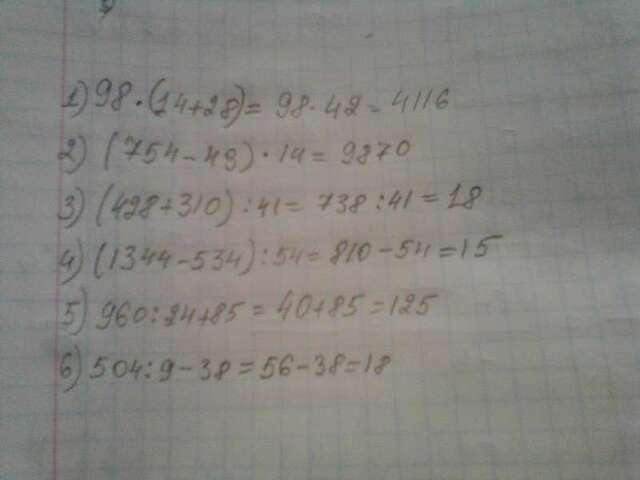 1) 98·(14+28)= 98·42=4116
2) (754-49)·14=9870
3) (428+310):41=738:41=18
4) (1344-534):54=810-54=15
5) 960:24+85=40+85=125
6) 504:9-38=56-38=18